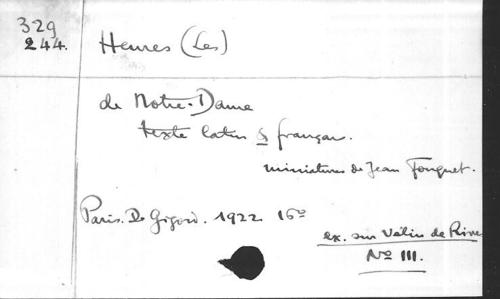 329
244.
Heures (Les)
de Notre-Dame
texte latin & français.
miniatures de Jean Fouquet.
Paris. De Gigord. 1922 16°
ex. sur Vélin de Rive
No III.